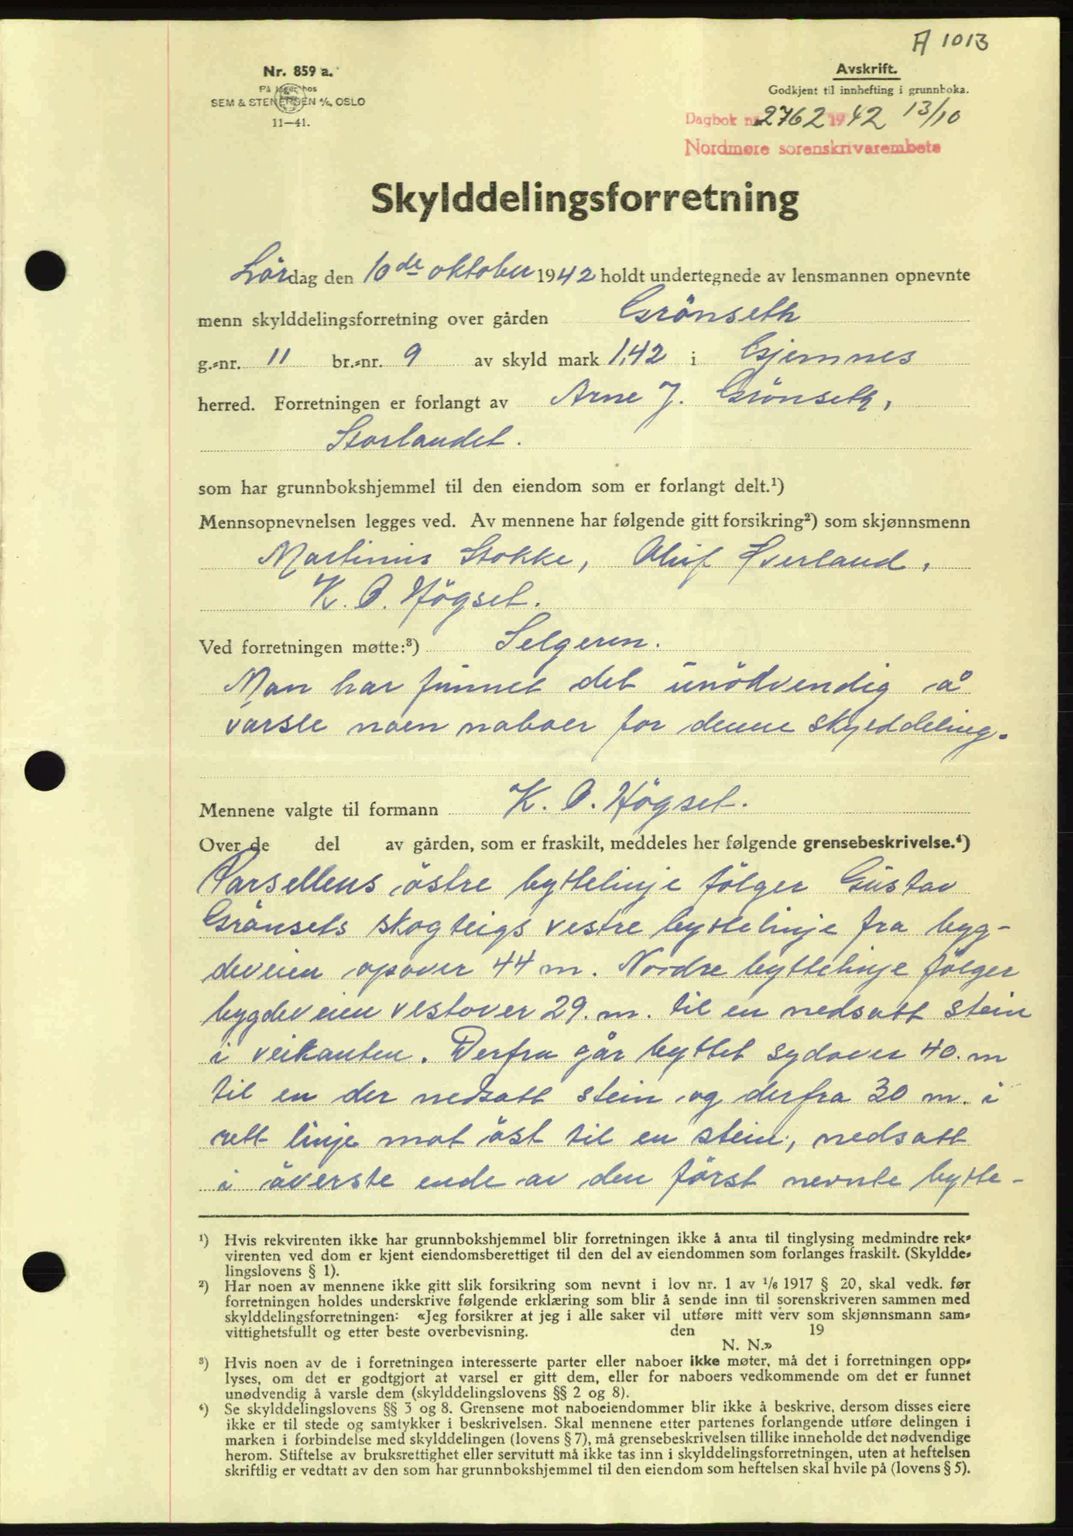 A 1013
Nr. 859 a.
På lager hos
SEM & STENERSEN A/S, OSLO
11—41.
Avskrift.
Godkjent til innhefting i grunnboka.
Dagbok nr. 2762 1942 13/10
Nordmøre sorenskrivarembete
Skylddelingsforretning
Lördag den 10de oktober 1942 holdt undertegnede av lensmannen opnevnte
menn skylddelingsforretning over gården Grönseth
g.-nr. 11 br.-nr. 9 av skyld mark 1,42 i Gjemnes
herred. Forretningen er forlangt av Arne J. Grönseth,
Storlandet.
som har grunnbokshjemmel til den eiendom som er forlangt delt.¹)
Mennsopnevnelsen legges ved. Av mennene har følgende gitt forsikring²) som skjønnsmenn
Martinus Stokke, Oluf Øverland,
K. O. Högset.
Ved forretningen møtte:³) Selgeren.
Man har funnet det unödvendig å
varsle noen naboer for denne skylddeling.
Mennene valgte til formann K. O. Högset.
Over de del av gården, som er fraskilt, meddeles her følgende grensebeskrivelse.⁴)
Parsellens östre byttelinje fölger Gustav
Grönsets skogteigs vestre byttelinje fra byg-
deveien opover 44 m. Nordre byttelinje fölger
bygdeveien vestover 29. m. til en nedsatt stein
i veikanten. Derfra går byttet sydover 40. m
til en der nedsatt stein og derfra 30 m. i
rett linje mot öst til en stein, nedsatt
i överste ende av den först nevnte bytte-
¹) Hvis rekvirenten ikke har grunnbokshjemmel blir forretningen ikke å anta til tinglysing medmindre rek-
virenten ved dom er kjent eiendomsberettiget til den del av eiendommen som forlanges fraskilt. (Skyldde-
lingslovens § 1).
²) Har noen av mennene ikke gitt slik forsikring som nevnt i lov nr. 1 av 1/6 1917 § 20, skal vedk. før
forretningen holdes underskrive følgende erklæring som blir å sende inn til sorenskriveren sammen med
skylddelingsforretningen: «Jeg forsikrer at jeg i alle saker vil utføre mitt verv som skjønnsmann sam-
vittighetsfullt og etter beste overbevisning. den 19
N. N.»
³) Hvis noen av de i forretningen interesserte parter eller naboer ikke møter, må det i forretningen opp-
lyses, om det er godtgjort at varsel er gitt dem, eller for naboers vedkommende om det er funnet
unødvendig å varsle dem (skylddelingslovens §§ 2 og 8).
⁴) Se skylddelingslovens §§ 3 og 8. Grensene mot naboeiendommer blir ikke å beskrive, dersom disses eiere
ikke er til stede og samtykker i beskrivelsen. Skal mennene etter partenes forlangende utføre delingen i
marken i forbindelse med skylddelingen (lovens § 7), må grensebeskrivelsen tillike inneholde det nødvendige
herom. Stiftelse av bruksrettighet eller servitutt må ikke tas inn i skylddelingsforretningen, uten at heftelsen
skriftlig er vedtatt av den som har grunnbokshjemmel til den eiendom som heftelsen skal hvile på (lovens § 5).